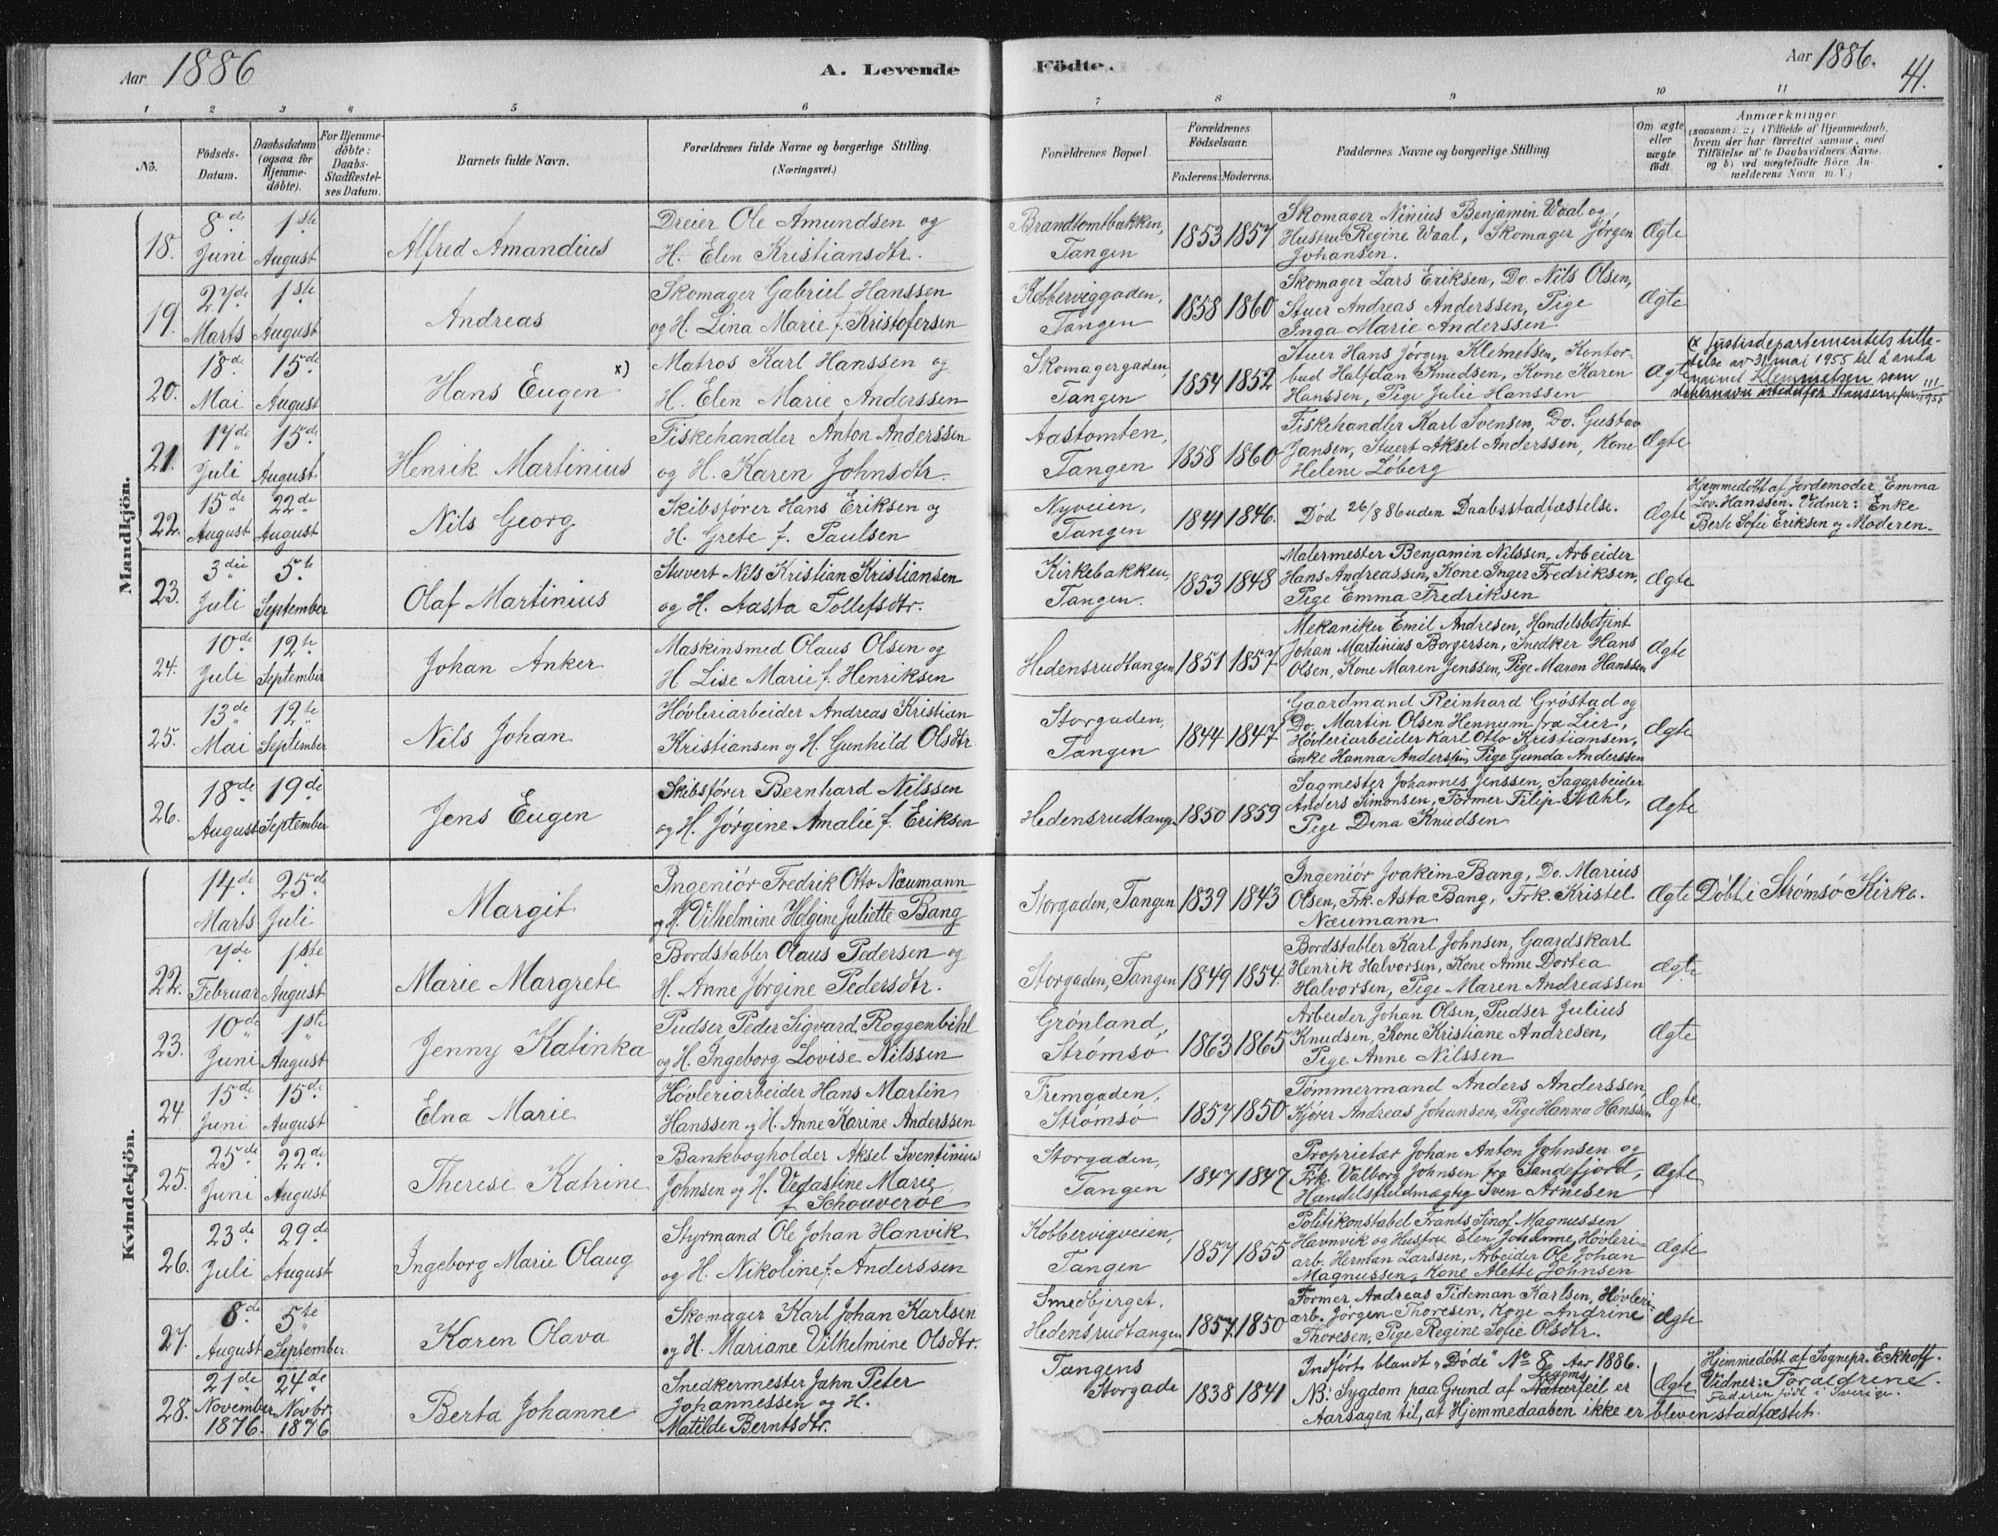 Aar 1886
A. Levende
Födte.
Aar 1886.
41.
1 2 3 4 5 6 7 8 9 10 11
No.
Födsels-
Datum.
Daabsdatum
(ogsaa for
Hjemme-
døbte).
For Hjemme-
döbte:
Daabs-
Stadfæstel-
ses Datum.
Barnets fulde Navn.
Forældrenes fulde Navne og borgerlige Stilling
(Næringsvei.)
Forældrenes Bopæl
Forældrenes
Födselsaar.
Faderens. Moderens.
Faddernes Navne og borgerlige Stilling
Om ægte
eller
uægte
födt
Anmærkninger
(saasom: a) i Tilfælde af Hjemmedaab,
hvem der har forrettet samme, med
Tilföielse af to Daabsvidners Navne.
og b) ved uægtefödte Börn An-
melderens Navn m. V.)
Mandkjön.
18.
8de
Juni
1ste
August
Alfred Amandius
Dreier Ole Amundsen og
H. Elen Kristiansdtr.
Brandtomtbakken,
Tangen
1853 1857
Skomager Ninius Benjamin Waal og
Hustru Regine Waal, Skomager Jørgen
Johansen.
Ægte
19.
27de
Marts
1ste
August
Andreas
Skomager Gabriel Hanssen
og H. Lina Marie f. Kristofersen
Kobberviggaden,
Tangen
1858 1860
Skomager Lars Eriksen, Do. Nils Olsen,
Stuer Andreas Anderssen, Pige
Inga Marie Anderssen
Ægte
20.
18de
Mai
15de
August
Hans Eugen x)
Matros Karl Hanssen og
H. Elen Marie Anderssen
Skomagergaden,
Tangen
1854 1852
Stuer Hans Jørgen Klemetsen, Kontor-
bud Halfdan Knudsen, Kone Karen
Hanssen, Pige Julie Hanssen
Ægte
(x Justisdepartementets tilla-
telse av 31 mai 1955 til å anta
navnet Klemmetsen som
slektsnavn istedetfor Hansen, 1955
21.
17de
Juli
15de
August
Henrik Martinius
Fiskehandler Anton Anderssen
og H. Karen Johnsdtr.
Aastomten,
Tangen
1858 1860
Fiskehandler Karl Svensen, Do. Gustav
Jansen, Stuert Aksel Anderssen, Kone
Helene Löberg
Ægte
22.
15de
August
22de
August
Nils Georg
Skibsfører Hans Eriksen og
H. Grete f. Paulsen
Nyveien,
Tangen
1841 1846.
Død 26/8 86 uden Daabsstadfæstelse.
Ægte
Hjemmedøbt af Jordemoder Emma
Lov. Hanssen. Vidner: Enke
Berte Sofie Eriksen og Moderen.
23.
3die
Juli
5te
September
Olaf Martinius
Stuvert Nils Kristian Kristiansen
og H. Aasta Tollefsdtr.
Kirkebakken,
Tangen.
1853 1848
Malermester Benjamin Nilssen, Arbeider
Hans Andreassen, Kone Inger Fredriksen,
Pige Emma Fredriksen
Ægte
24.
10de
Juli
12te
September
Johan Anker
Maskinsmed Olaus Olsen og
H. Lise Marie f. Henriksen
Hedensrudtangen
1851 1857
Mekaniker Emil Andresen, Handelsbetjent
Johan Martinius Borgersen, Snedker Hans
Olsen, Kone Maren Jenssen, Pige Maren Hanssen
Ægte
25.
13de
Mai
12te
September
Nils Johan
Høvleriarbeider Andreas Kristian
Kristiansen og H. Gunhild Olsdtr
Storgaden,
Tangen
1844 1847
Gaardmand Reinhard Grøstad og
Do. Martin Olsen Hennum fra Lier,
Høvleriarbeider Karl Otto Kristiansen,
Enke Hanna Anderssen, Pige Gunda Anderssen
Ægte
26.
18de
August
19de
September
Jens Eugen
Skibsfører Bernhard Nilssen
og H. Jørgine Amalie f. Eriksen
Hedensrudtangen
1850 1859
Sagmester Johannes Jenssen, Sagarbeider
Anders Simonsen, Former Filip Kahl,
Pige Dina Knudsen
Ægte
Kvindekjön.
14de
Marts
25de
Juli
Margit
Ingeniör Fredrik Otto Næumann
og H. Vilhelmine Helgine Juliette Bang
Storgaden, Tangen
1839 1843
Ingeniör Joakim Bang, Do. Marius
Olsen, Frk. Asta Bang, Frk. Kristel
Næumann
Ægte
Döbt i Strømsö Kirke.
22.
7de
Februar
1ste
August
Marie Margrete
Bordstabler Olaus Pedersen og
H. Anne Jørgine Pedersdtr.
Storgaden, Tangen
1849 1854.
Bordstabler Karl Johnsen, Gaardskarl
Henrik Halvorsen, Kone Anne Dortea
Halvorsen, Pige Maren Andreassen
Ægte
23.
10de
Juni
1ste
August
Jenny Katinka
Pudser Peder Sigvard Roggenbihl
og H. Ingeborg Lovise Nilssen
Grønland,
Strømsö
1863 1865
Arbeider Johan Olsen, Pudser Julius
Knudsen, Kone Kristiane Andresen,
Pige Anne Nilssen
Ægte
24
15de
Juni
15de
August
Elna Marie
Høvleriarbeider Hans Martin
Hanssen og H. Anne Karine Anderssen
Fremgaden,
Strømsö
1857 1850
Tömmermand Anders Anderssen,
Kjører Andreas Johansen, Pige Hanna Hanssen
Ægte
25.
25de
Juni
22de
August
Therese Katrine
Bankbogholder Aksel Sventinius
Johnsen og H. Vedastine Marie
f. Schouveröe
Storgaden,
Tangen
1847 1847
Proprietær Johan Anton Johnsen og
Frk. Valborg Johnsen fra Sandefjord,
Handelsfuldmægtig Sven Arnesen
Ægte
26.
23de
Juli
29de
August
Ingeborg Marie Olaug
Styrmand Ole Johan Hanvik
og H. Nikoline f. Anderssen
Kobbervigveien,
Tangen
1857 1855
Politikonstabel Frants Sinof Magnussen
Havnvik og Hustru Elen Johanne, Høvleri-
arb. Herman Larssen, Arbeider Ole Johan
Magnussen, Kone Alette Johnsen
Ægte
27.
8de
August
5te
September
Karen Olava
Skomager Karl Johan Karlsen
og H. Mariane Vilhelmine Olsdtr.
Smedbjerget,
Hedensrudtangen
1857 1850
Former Andreas Tideman Karlsen, Høvleri-
arb. Jørgen Thoresen, Kone Andrine
Thoresen, Pige Regine Sofie Olsdtr.
Ægte
28.
21de
November
1876.
24de
Novbr.
1876
Berta Johanne
Snedkermester Jahn Peter
Johannessen og H.
Matilde Berntsdtr.
Tangens
Storgade
1838 1841
Indført blandt "Döde" No 8 Aar 1886.
NB: Sygdom paa Grund af Naturfeil er
Aarsagen til, at Hjemmedaaben ikke er bleven stadfæstet.
Ægte
Hjemmedøbt af Sognepr. Eckhoff.
Vidner: Forældrene.
Faderen født i Sverige.